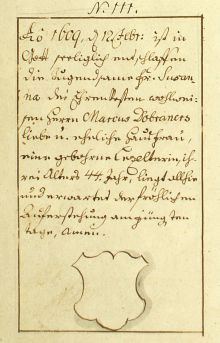 N. 111.
Aõ 1609, d 12 Febr: ist in
Gott seeliglich entschlaffen
die tugendsame Fr. Susan-
na des Ehrenvesten wohlwei-
sen Herrn Marcus Dobraners
liebe u. eheliche Hausfrau,
eine gebohrne ih-
res Alters 44. Jahr, liegt allhie
und erwartet der fröhlichen
Auferstehung am jüngsten
tage, Amen.